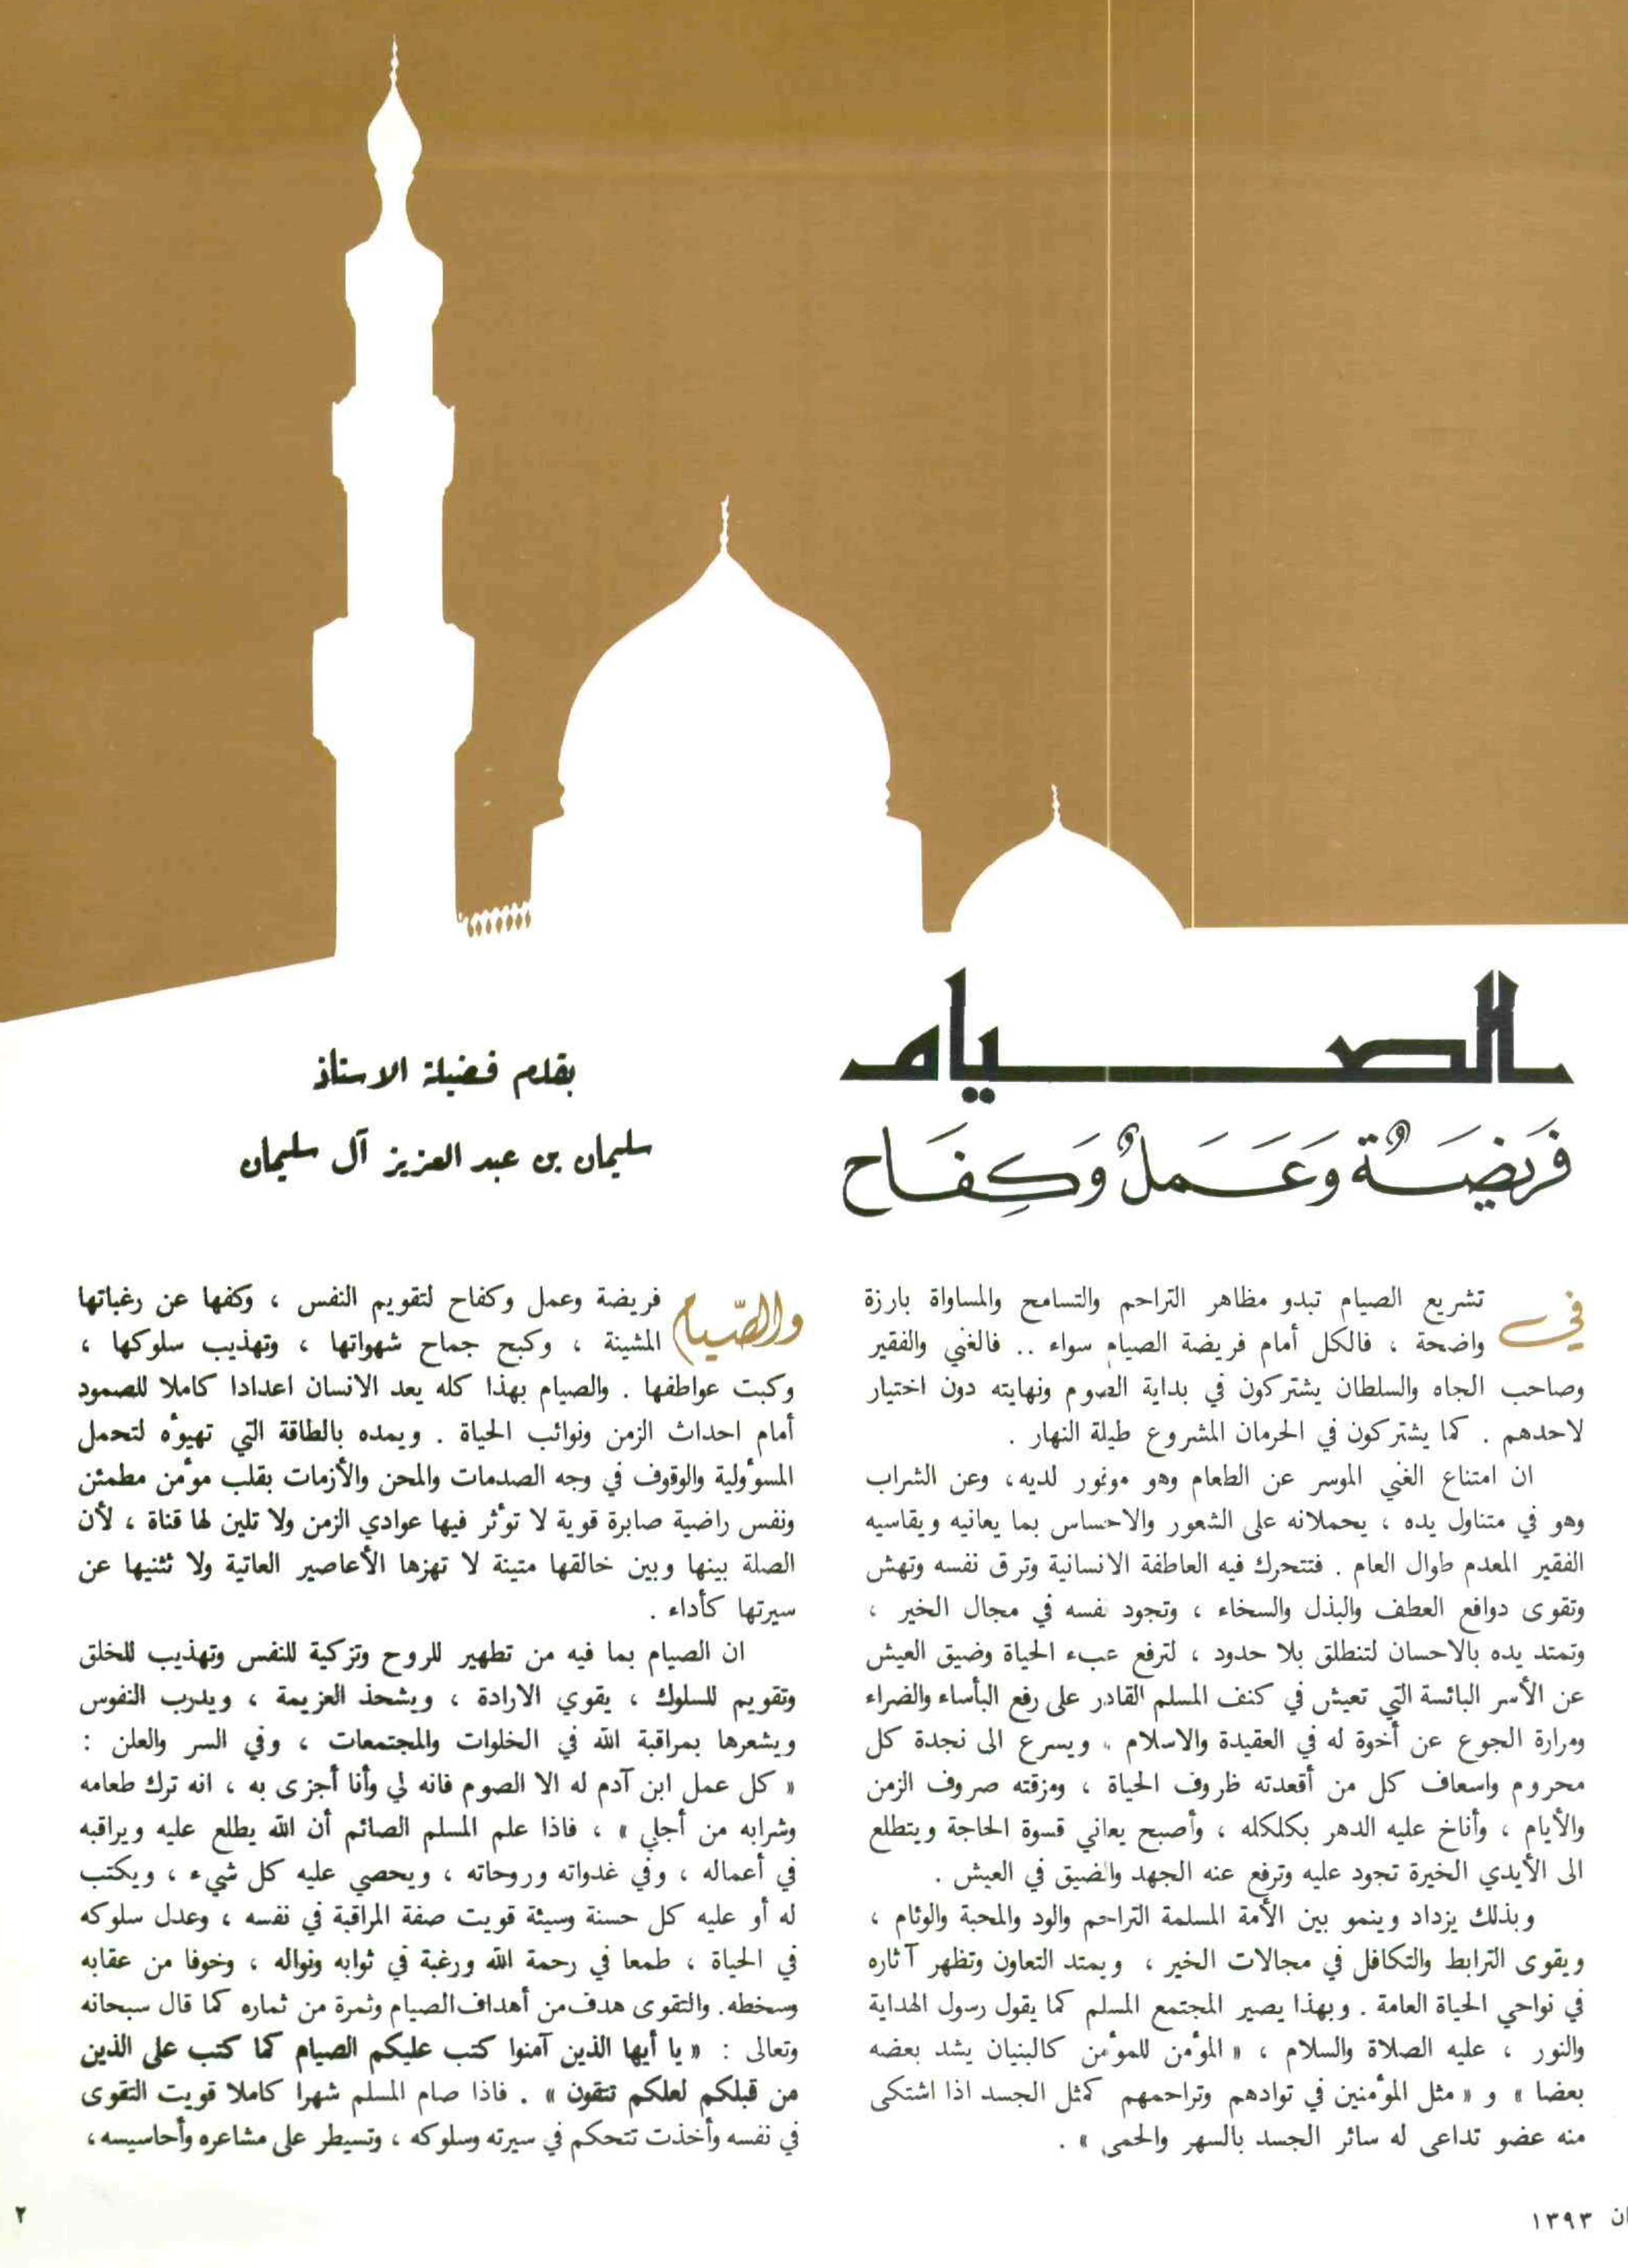 الصيام
فَريضَةٌ وَعَمَلٌ وَكِفَاح
بقلم فضيلة الاستاذ
سليمان بن عبد العزيز آل سليمان
في تشريع الصيام تبدو مظاهر التراحم والتسامح والمساواة بارزة
واضحة ، فالكل أمام فريضة الصيام سواء .. فالغني والفقير
وصاحب الجاه والسلطان يشتركون في بداية الصوم ونهايته دون اختيار
لاحدهم . كما يشتركون في الحرمان المشروع طيلة النهار .
ان امتناع الغني الموسر عن الطعام وهو موفور لديه ، وعن الشراب
وهو في متناول يده ، يحملانه على الشعور والاحساس بما يعانيه ويقاسيه
الفقير المعدم طوال العام . فتتحرك فيه العاطفة الانسانية وترق نفسه وتهش
وتقوى دوافع العطف والبذل والسخاء ، وتجود نفسه في مجال الخير ،
وتمتد يده بالاحسان لتنطلق بلا حدود ، لترفع عبء الحياة وضيق العيش
عن الأسر البائسة التي تعيش في كنف المسلم القادر على رفع البأساء والضراء
ومرارة الجوع عن أخوة له في العقيدة والاسلام ، ويسرع الى نجدة كل
محروم واسعاف كل من أقعدته ظروف الحياة ، ومزقته صروف الزمن
والأيام ، وأناخ عليه الدهر بكلكله ، وأصبح يعاني قسوة الحاجة ويتطلع
الى الأيدي الخيرة تجود عليه وترفع عنه الجهد والضيق في العيش .
وبذلك يزداد وينمو بين الأمة المسلمة التراحم والود والمحبة والوئام ،
ويقوى الترابط والتكافل في مجالات الخير ، ويمتد التعاون وتظهر آثاره
في نواحي الحياة العامة . وبهذا يصير المجتمع المسلم كما يقول رسول الهداية
والنور ، عليه الصلاة والسلام ، « المؤمن للمؤمن كالبنيان يشد بعضه
بعضا » و « مثل المؤمنين في توادهم وتراحمهم كمثل الجسد اذا اشتكى
منه عضو تداعى له سائر الجسد بالسهر والحمى » .
والصّيام فريضة وعمل وكفاح لتقويم النفس ، وكفها عن رغباتها
المشينة ، وكبح جماح شهواتها ، وتهذيب سلوكها ،
وكبت عواطفها . والصيام بهذا كله يعد الانسان اعدادا كاملا للصمود
أمام احداث الزمن ونوائب الحياة . ويمده بالطاقة التي تهيؤه لتحمل
المسؤولية والوقوف في وجه الصدمات والمحن والأزمات بقلب مؤمن مطمئن
ونفس راضية صابرة قوية لا تؤثر فيها عوادي الزمن ولا تلين لها قناة ، لأن
الصلة بينها وبين خالقها متينة لا تهزها الأعاصير العاتية ولا تثنيها عن
سيرتها كأداء .
ان الصيام بما فيه من تطهير للروح وتزكية للنفس وتهذيب للخلق
وتقويم للسلوك ، يقوي الارادة ، ويشحذ العزيمة ، ويدرب النفوس
ويشعرها بمراقبة الله في الخلوات والمجتمعات ، وفي السر والعلن :
« كل عمل ابن آدم له الا الصوم فانه لي وأنا أجزى به ، انه ترك طعامه
وشرابه من أجلي » ، فاذا علم المسلم الصائم أن الله يطلع عليه ويراقبه
في أعماله ، وفي غدواته وروحاته ، ويحصي عليه كل شيء ، ويكتب
له أو عليه كل حسنة وسيئة قويت صفة المراقبة في نفسه ، وعدل سلوكه
في الحياة ، طمعا في رحمة الله ورغبة في ثوابه ونواله ، وخوفا من عقابه
وسخطه . والتقوى هدف من أهداف الصيام وثمرة من ثماره كما قال سبحانه
وتعالى : « يا أيها الذين آمنوا كتب عليكم الصيام كما كتب على الذين
من قبلكم لعلكم تتقون » . فاذا صام المسلم شهرا كاملا قويت التقوى
في نفسه وأخذت تتحكم في سيرته وسلوكه ، وتسيطر على مشاعره وأحاسيسه ،
ان ١٣٩٣
٢